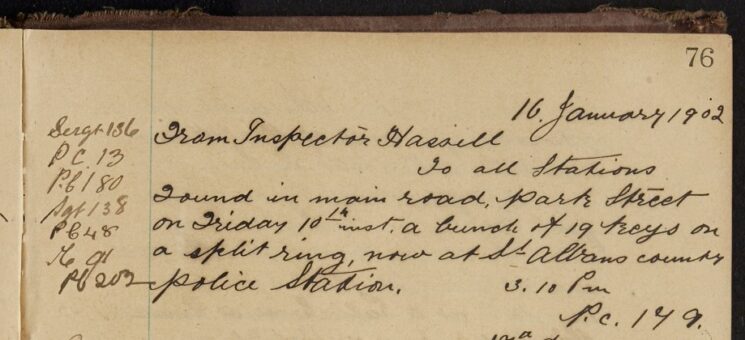 76
16. January 1902
Sergt 136
From Inspector Hassell
P.C. 13
To all Stations
P.C 180
Found in main road, Park Street
Sgt 138
on Friday 10th inst. a bunch of 19 keys on
PC 48
a split ring, now at St Albans county
91
PC 203
Police Station.
3.10 Pm
P.c. 179.